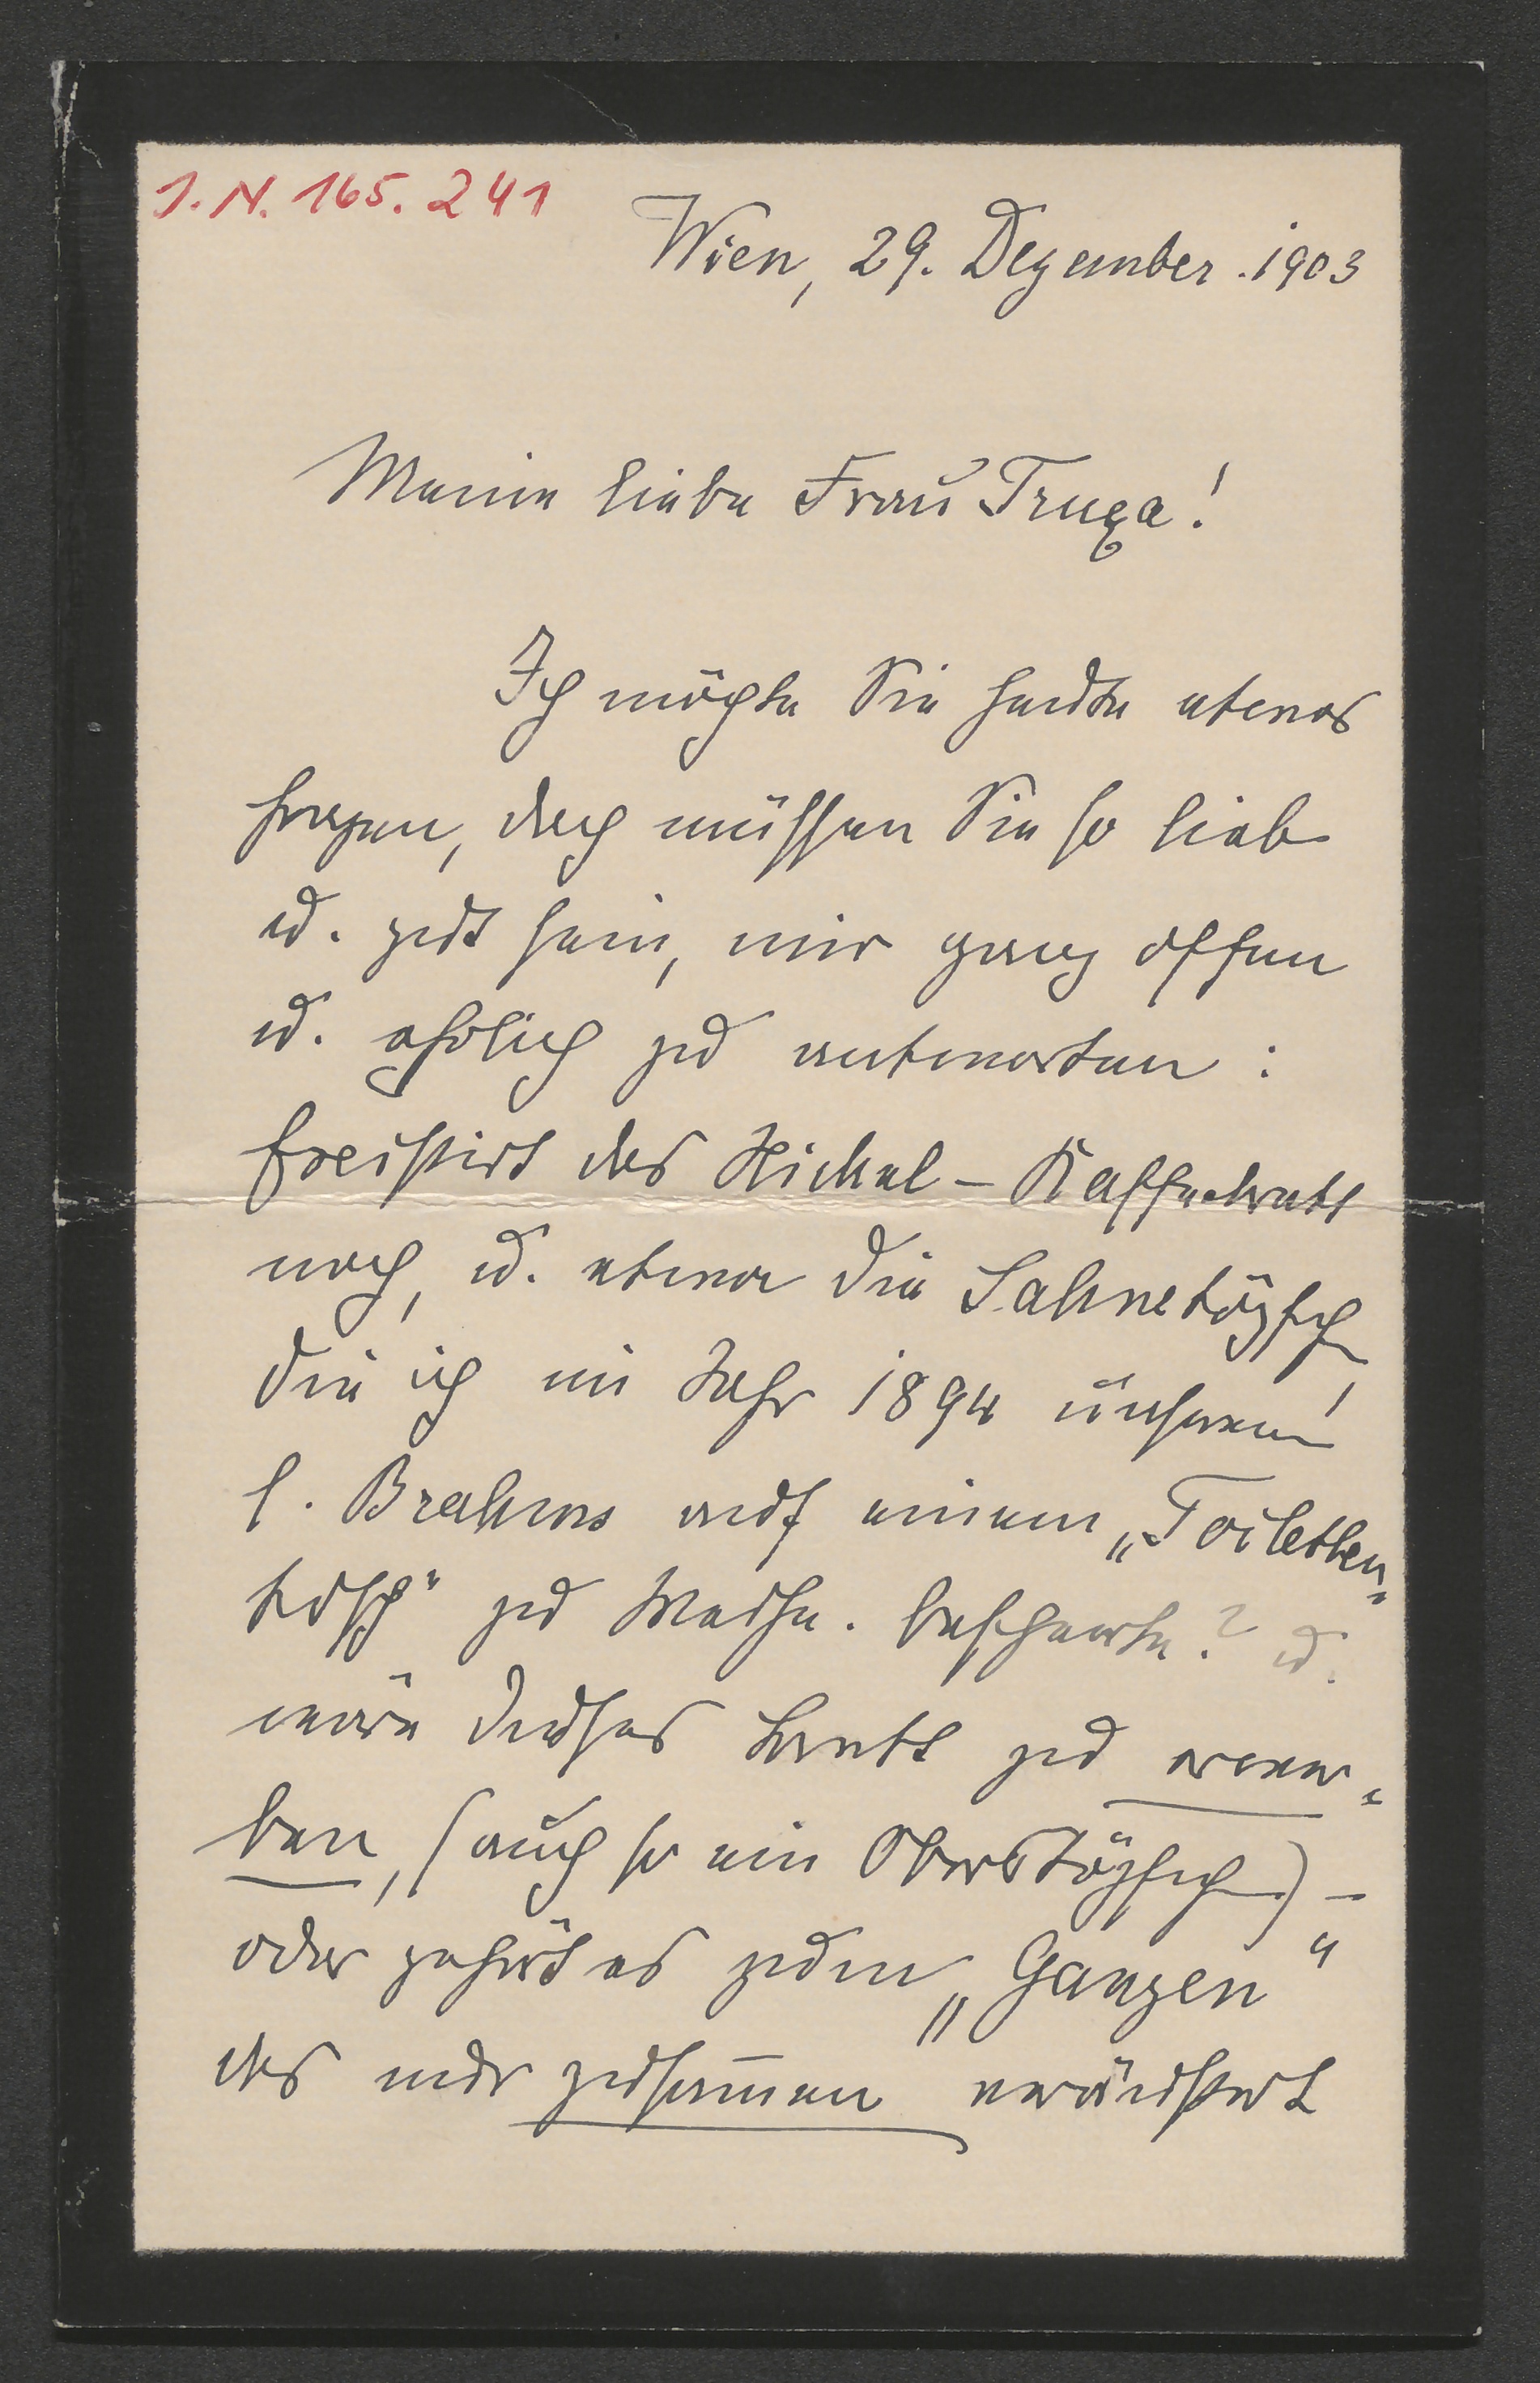 J. N. 165.241
Wien, 29. Dezember 1903
Meine liebe Frau Truxa!
Ich möchte Sie heute etwas
fragen, doch müssen Sie so lieb
u. gut sein, mir ganz offen
u. ehrlich zu antworten:
Existirt das Nickel-Kaffeebrett
noch, u. etwa die Sahnetöpfch
die ich im Jahr 1894 unserem
l. Brahms auf einem „Toiletten-
tisch" zu Weihn. bescheerte? u.
wäre dieses Brett zu erwer-
ben, (auch so ein Oberstöpfch) –
oder gehört es zum „Ganzen"
das nur zusam̄en veräußert